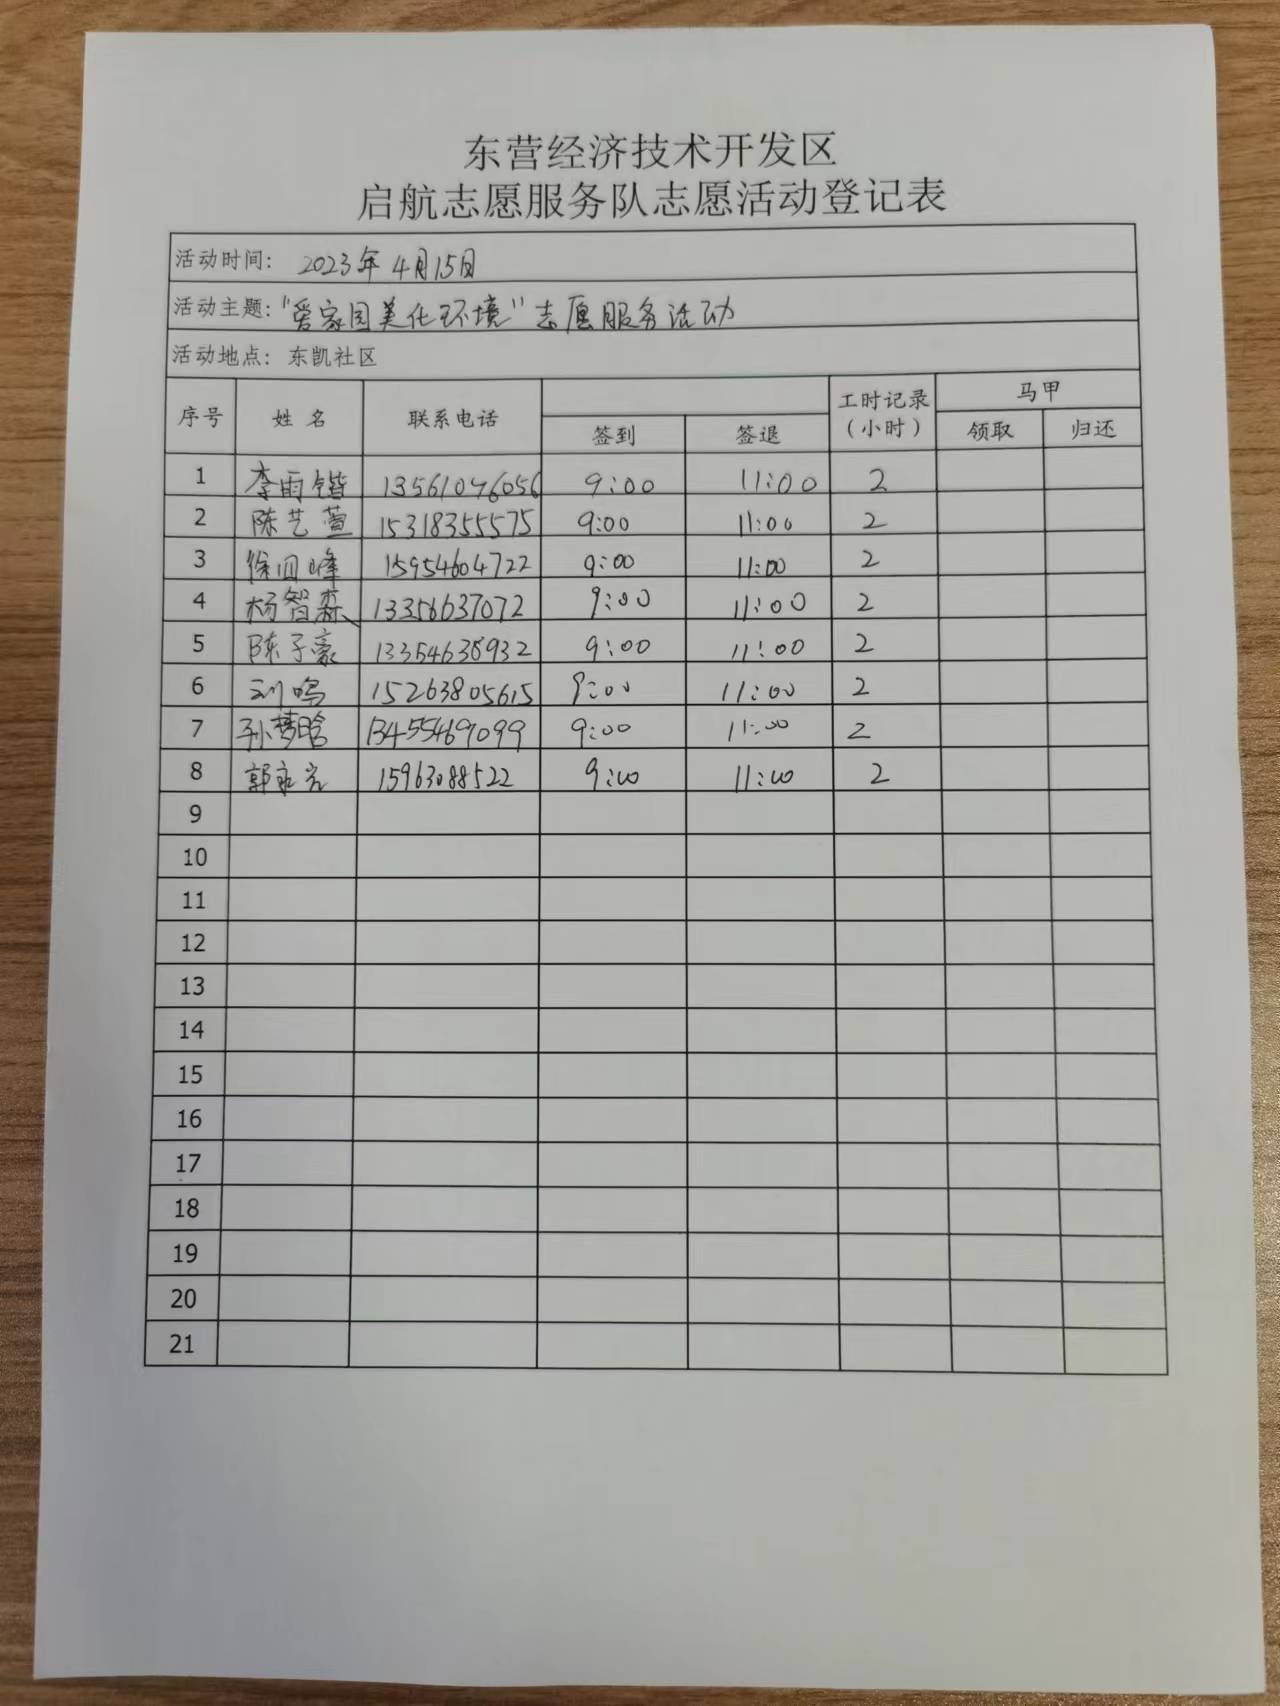 东营经济技术开发区
启航志愿服务队志愿活动登记表
活动时间: 2023年4月15日
活动主题:"爱家园美化环境"志愿服务活动
活动地点: 东凯社区
序号 姓名 联系电话 签到 签退 工时记录(小时) 马甲 领取 归还
1 李雨锴 13561046056 9:00 11:00 2
2 陈艺萱 15318355575 9:00 11:00 2
3 15954604722 9:00 11:00 2
4 杨智森 13356637072 9:00 11:00 2
5 陈子豪 13354635932 9:00 11:00 2
6 刘鸣 15263805615 9:00 11:00 2
7 孙梦晗 13455469099 9:00 11:00 2
8 15963088522 9:00 11:00 2
9
10
11
12
13
14
15
16
17
18
19
20
21